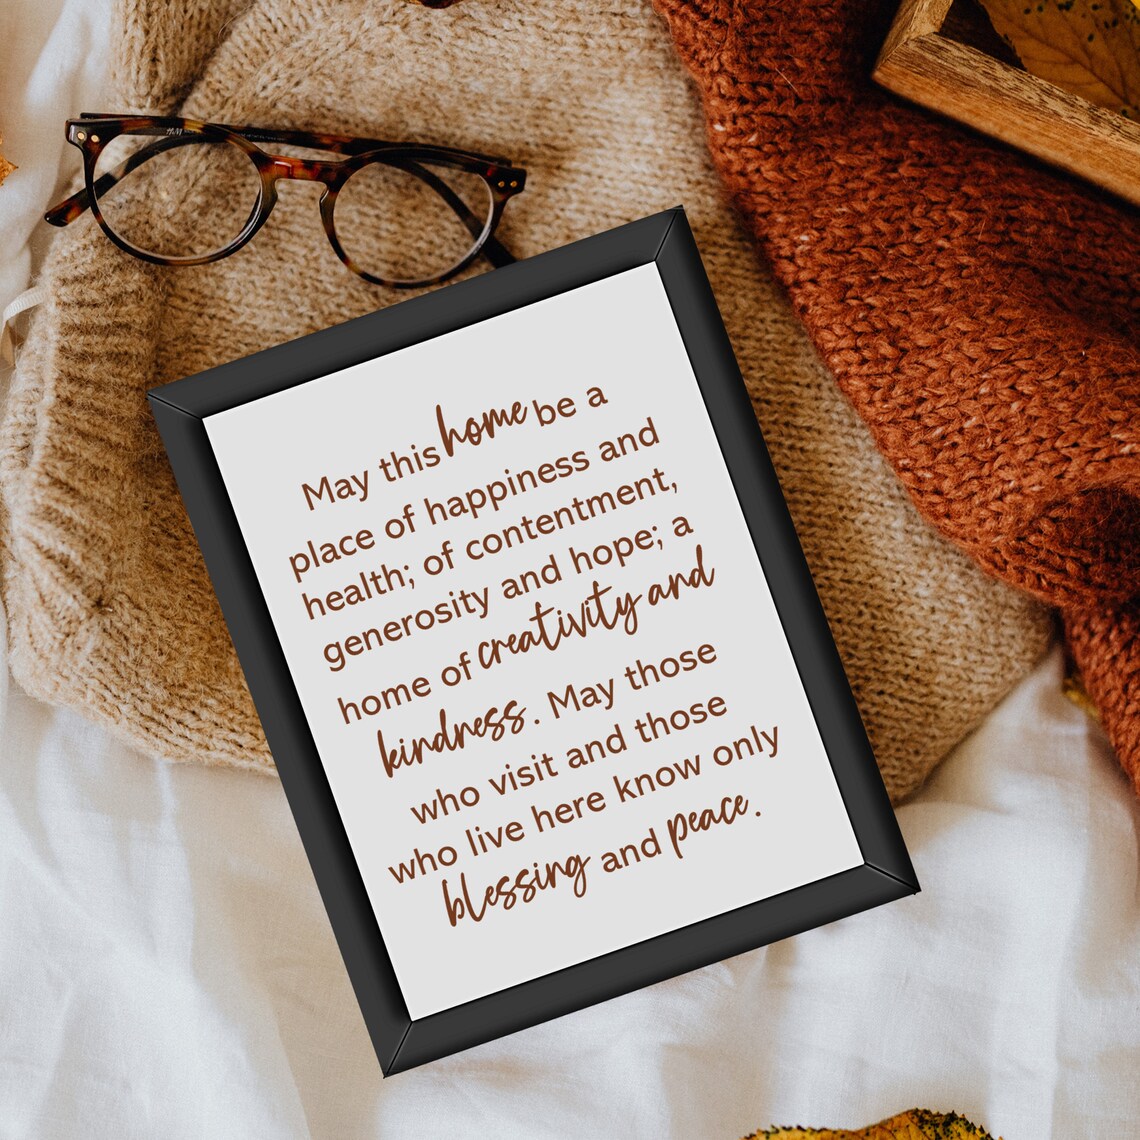 May this home be a
place of happiness and
health; of contentment,
generosity and hope; a
home of creativity and
kindness. May those
who visit and those
who live here know only
blessing and peace.